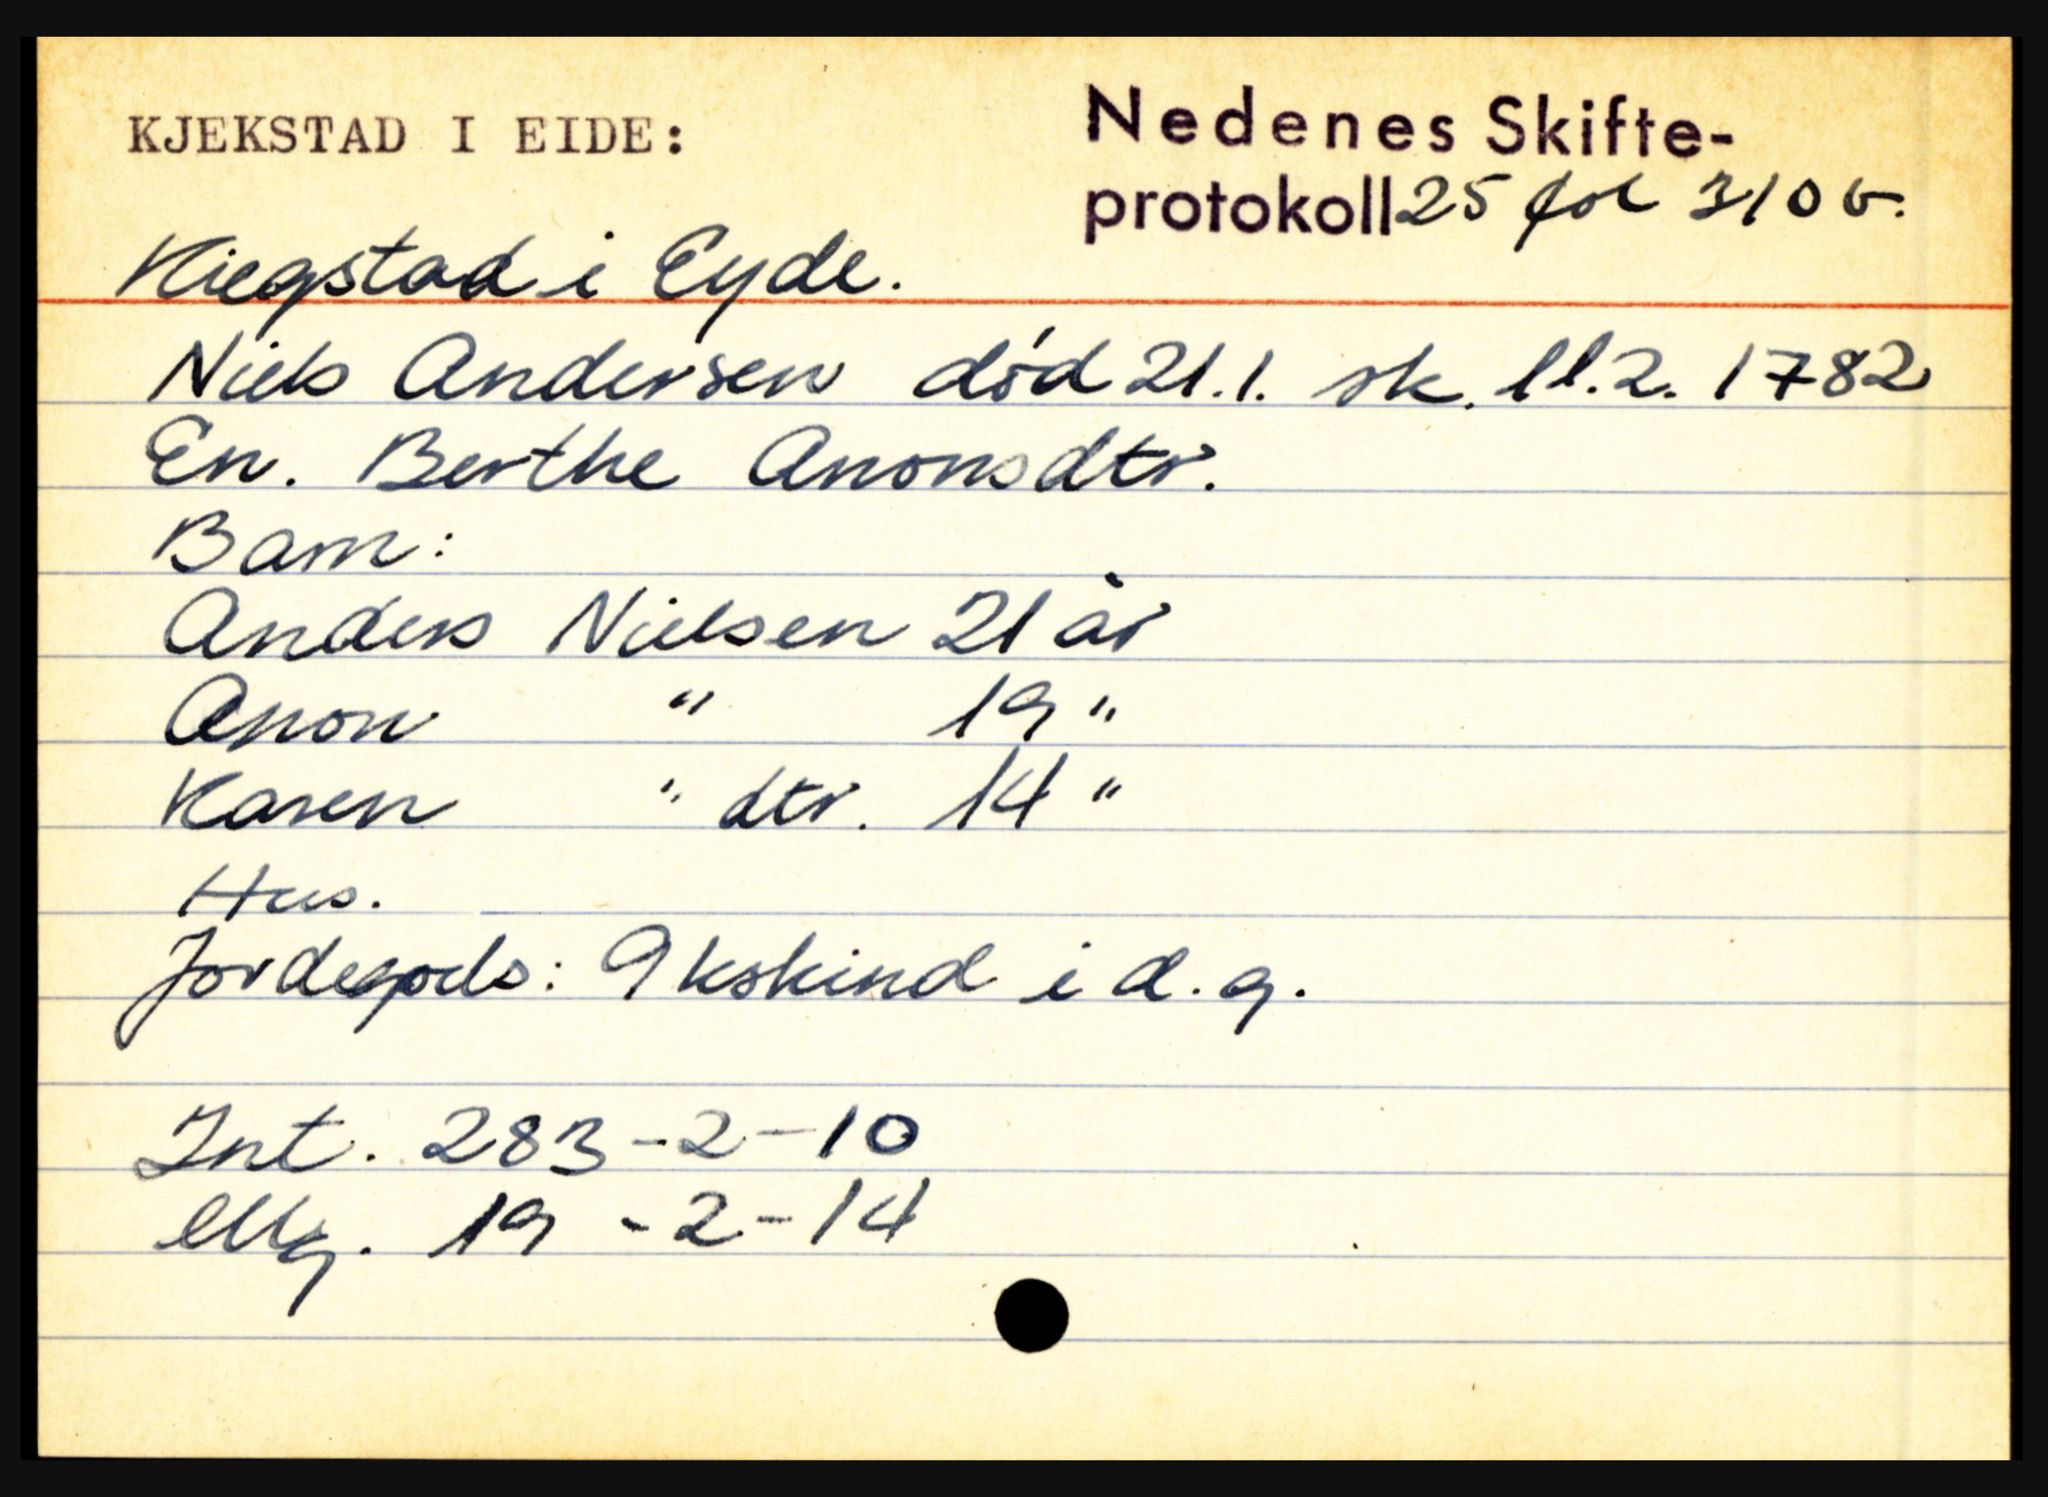 KJEKSTAD I EIDE:
Nedenes Skifte-
protokoll 25 fol 310 b.
Kiegstad i Eyde.
Niels Andersen død 21.1. sk. 11.2. 1782
En. Berthe Anonsdtr.
Barn:
Anders Nielsen 21 år
Anon " 19 "
Karen " dtr. 14 "
Hus.
Jordegods: 9 kskind i d. g.
Int. 283-2-10
19-2-14